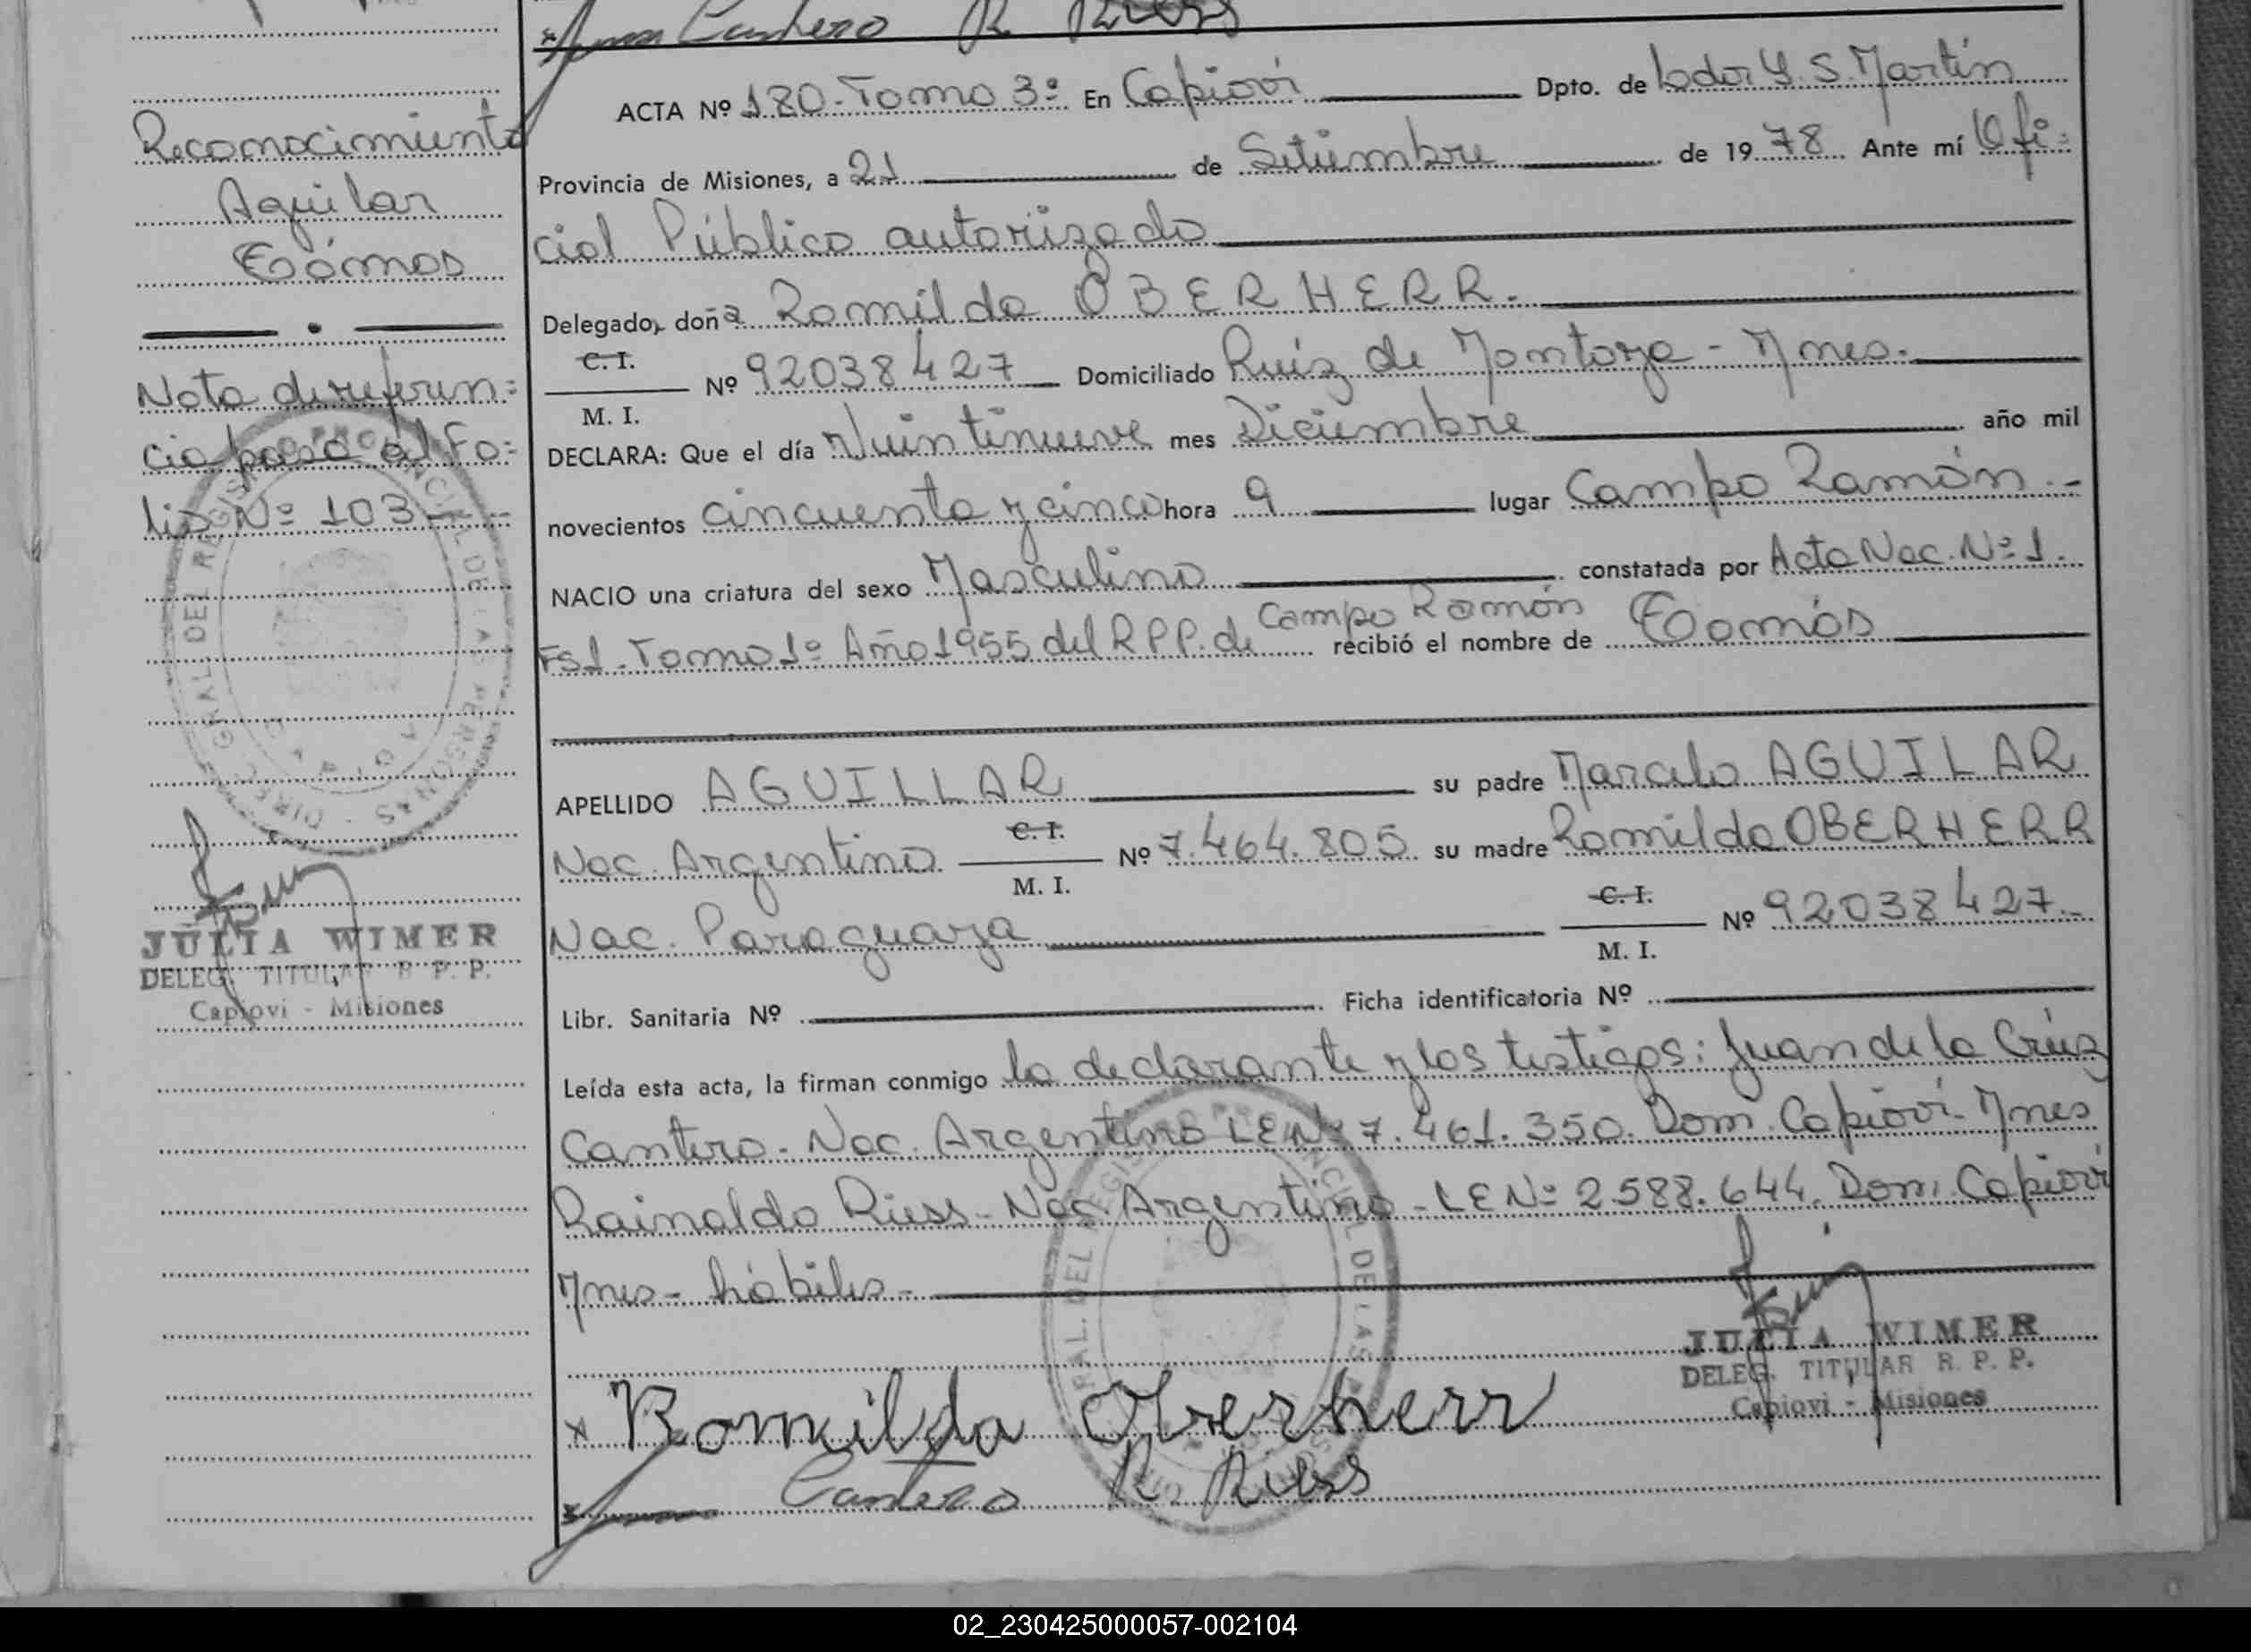 Cantero R. Riess
ACTA Nº 180-Tomo 3º En Capioví Dpto. de Lodor G. S. Martín
Provincia de Misiones, a 21 de Setiembre de 1978 Ante mí Ofi=
cial Público autorizado
Delegado, doña Romilda OBERHERR.
C. I.
Nº 92038427 Domiciliado Ruíz de Montoya - Mnes.
M. I.
DECLARA: Que el día Veintinueve mes Diciembre año mil
novecientos cincuenta y cinco hora 9 lugar Campo Ramón.-
NACIO una criatura del sexo Masculino constatada por Acta Nac. Nº 1.
Fs 1-Tomo 1º Año 1955 del R.P.P. de Campo Ramón recibió el nombre de Tomás
APELLIDO AGUILLAR su padre Marcelo AGUILAR
Nac. Argentino C. I. Nº 7.464.805 su madre Romilda OBERHERR
M. I.
Nac. Paraguaya C. I. Nº 92038427.-
M. I.
Libr. Sanitaria Nº Ficha identificatoria Nº
Leída esta acta, la firman conmigo la declarante y los testigos: Juan de la Crúz
Cantero- Nac. Argentino LE Nº 7.461.350. Dom. Capioví-Mnes
Rainoldo Riess- Nac Argentino-LE Nº 2588.644. Dom. Capioví
Mnes- hábiles-
JULIA WIMER
DELEG. TITULAR R. P. P.
Capiovi - Misiones
x Romilda Oberherr
Cantero R. Riess
Reconocimiento
Aguilar
Tómas
Nota de referen=
cia pasa al Fo=
lio Nº 103-
DIREC. GRAL. DEL REGISTRO PROVINCIAL DE LAS PERSONAS
JULIA WIMER
DELEG. TITULAR R. P. P.
Capiovi - Misiones
GRAL. DEL REGISTRO PROVINCIAL DE LAS
02_230425000057-002104